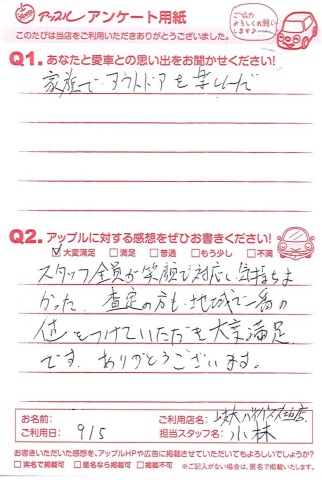 アップル アンケート用紙
このたびは当店をご利用いただきありがとうございました。
ご協力
よろしくお願い
します♪
Q1.あなたと愛車との思い出をお聞かせください!
家族でアウトドアを楽しんだ
Q2.アップルに対する感想をぜひお書きください!
☑大変満足 □満足 □普通 □もう少し □不満
スタッフ全員が笑顔で対応し気持ちよ
かった。査定の方も地域で一番の
値をつけていただき大変満足
です。ありがとうございます。
お名前: ご利用店名:岐大バイパス店
ご利用日: 9/5 担当スタッフ名:小林
お書きいただいた感想を、アップルHPや広告に掲載させていただいてもよろしいでしょうか?
□実名で掲載可 □匿名なら掲載可 □掲載不可 ※ご記入がない場合は、匿名で掲載いたします。